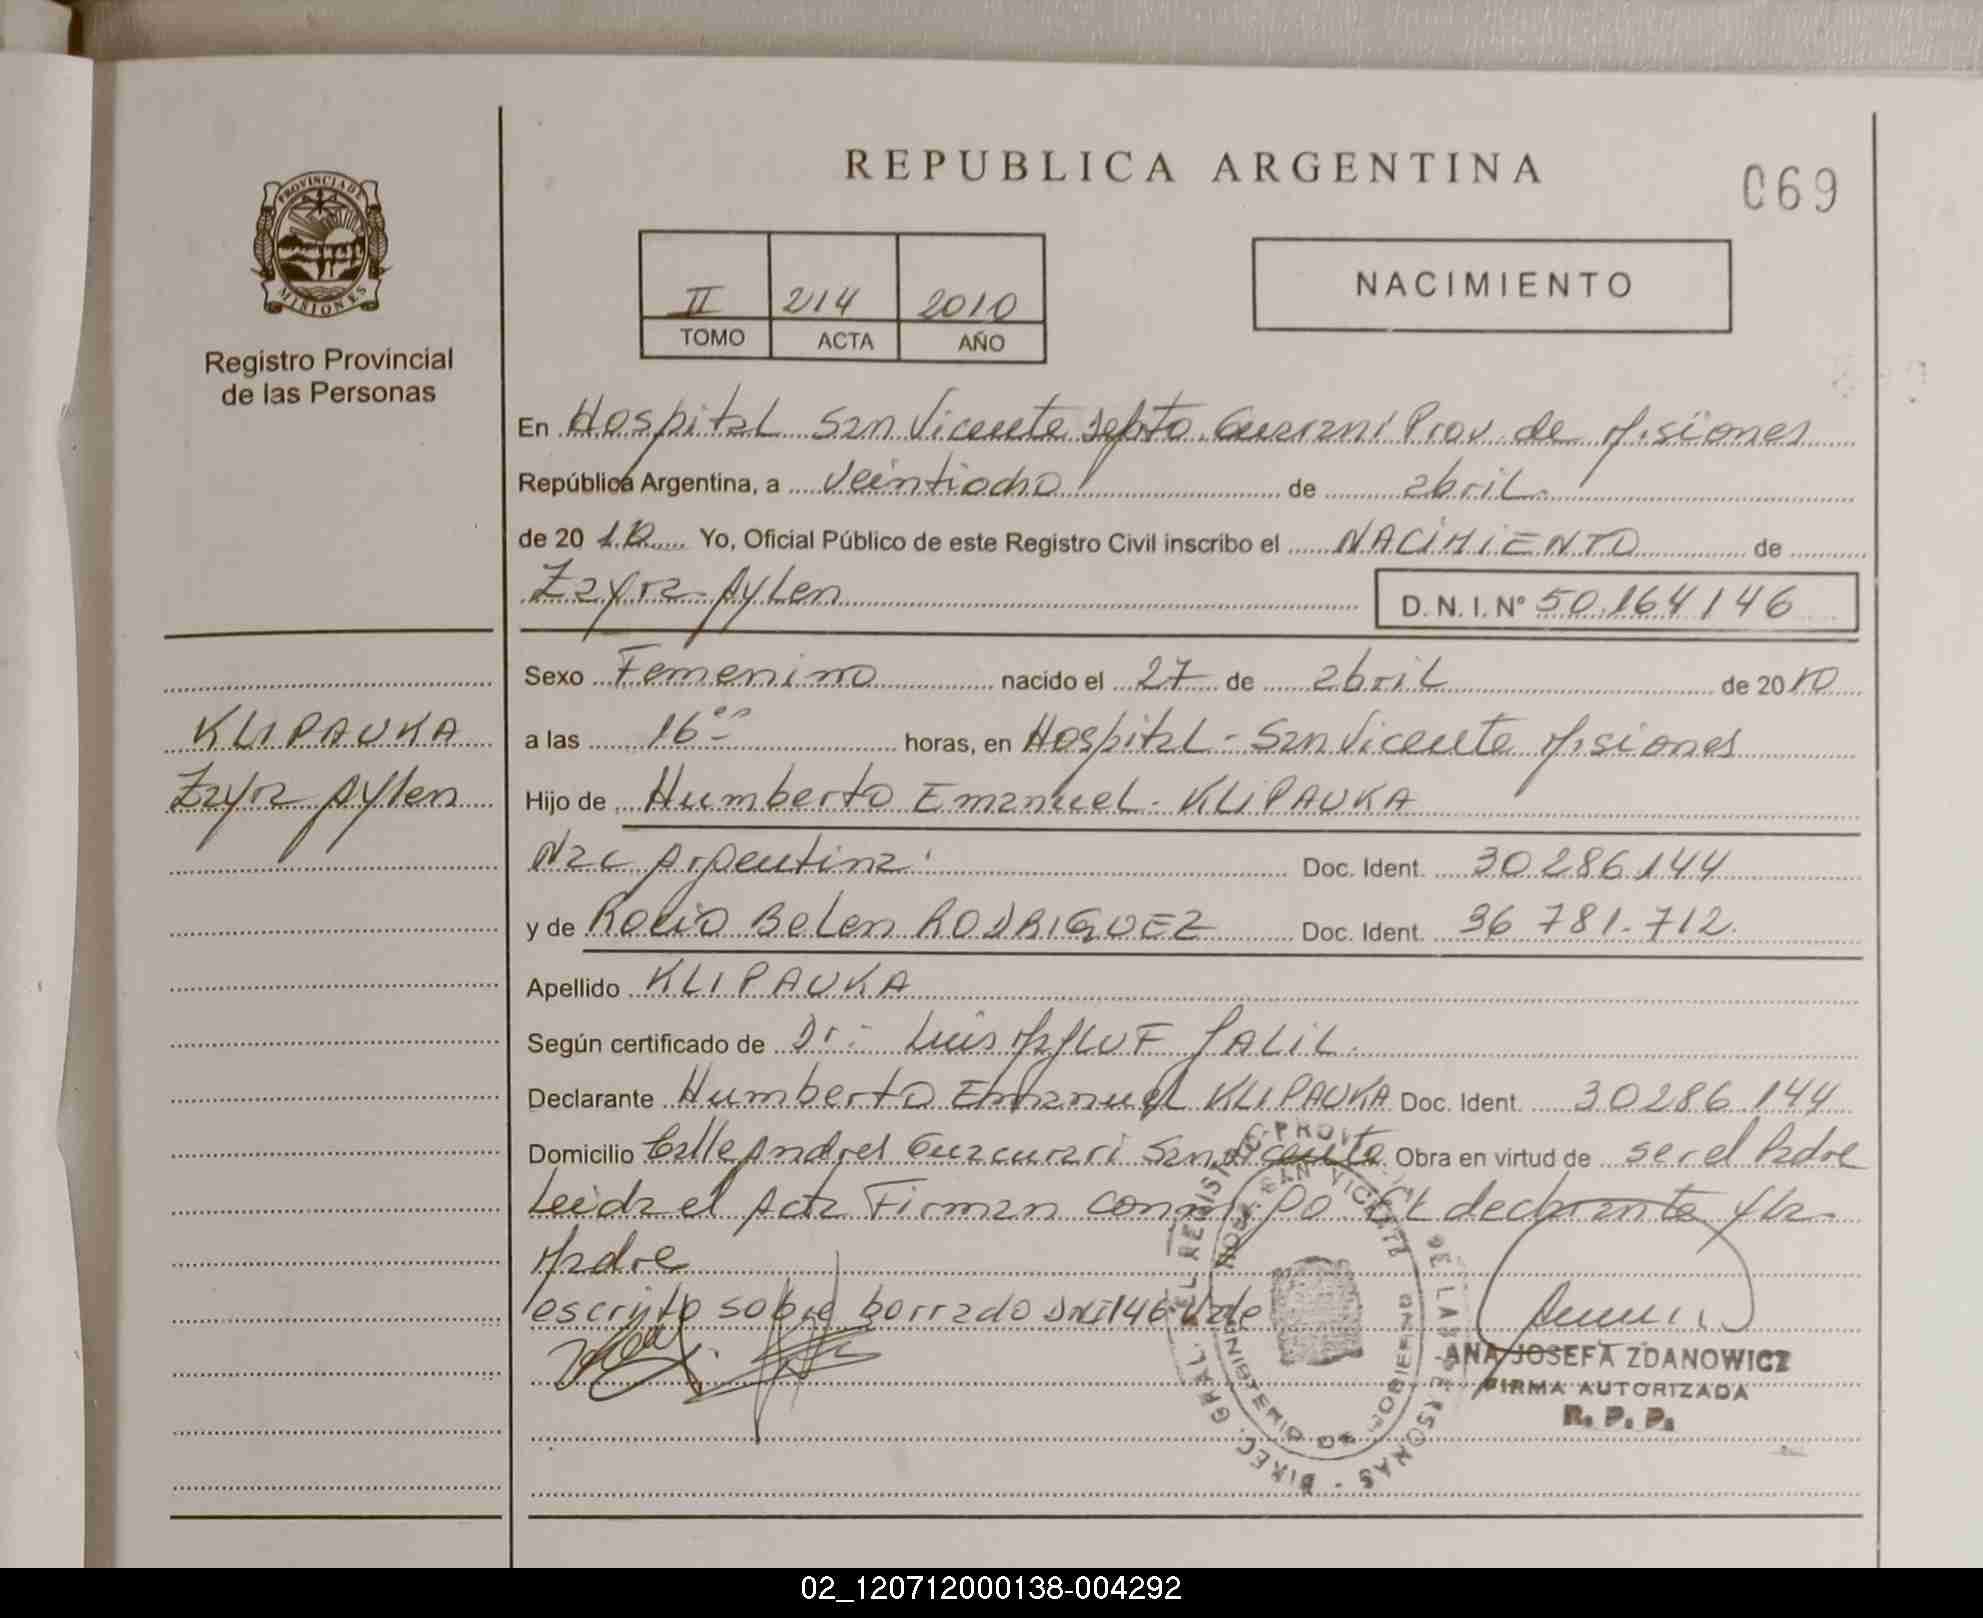 REPUBLICA ARGENTINA
069
PROVINCIA DE
MISIONES
Registro Provincial
de las Personas
II 214 2010
TOMO ACTA AÑO
NACIMIENTO
En Hospital San Vicente Depto. Guarani Prov. de Misiones
República Argentina, a Veintiocho de abril.
de 20 10 Yo, Oficial Público de este Registro Civil inscribo el NACIMIENTO de
Zayra Aylen D. N. I. Nº 50.164146
KLIPAUKA
Zayra Aylen
Sexo Femenino nacido el 27 de abril de 2010
a las 16 horas, en Hospital - San Vicente Misiones
Hijo de Humberto Emanuel - KLIPAUKA
Nac Argentina Doc. Ident. 30286.144
y de Rocio Belen RODRIGUEZ Doc. Ident. 36 781.712
Apellido KLIPAUKA
Según certificado de Dr: Luis JALIL
Declarante Humberto Emanuel KLIPAUKA Doc. Ident. 30286.144
Domicilio Calle Andres Guacurari San Vicente Obra en virtud de ser el Padre
Leida el Acta Firman conmigo El declarante y la
Madre
escrito sobre borrado DNI 146 Vale
DIREC. GRAL. EL REGISTRO PROV. DE LAS PERSONAS
HOSP. SAN VICENTE
MINISTERIO DE GOBIERNO
ANA JOSEFA ZDANOWICZ
FIRMA AUTORIZADA
R. P. P.
02_120712000138-004292